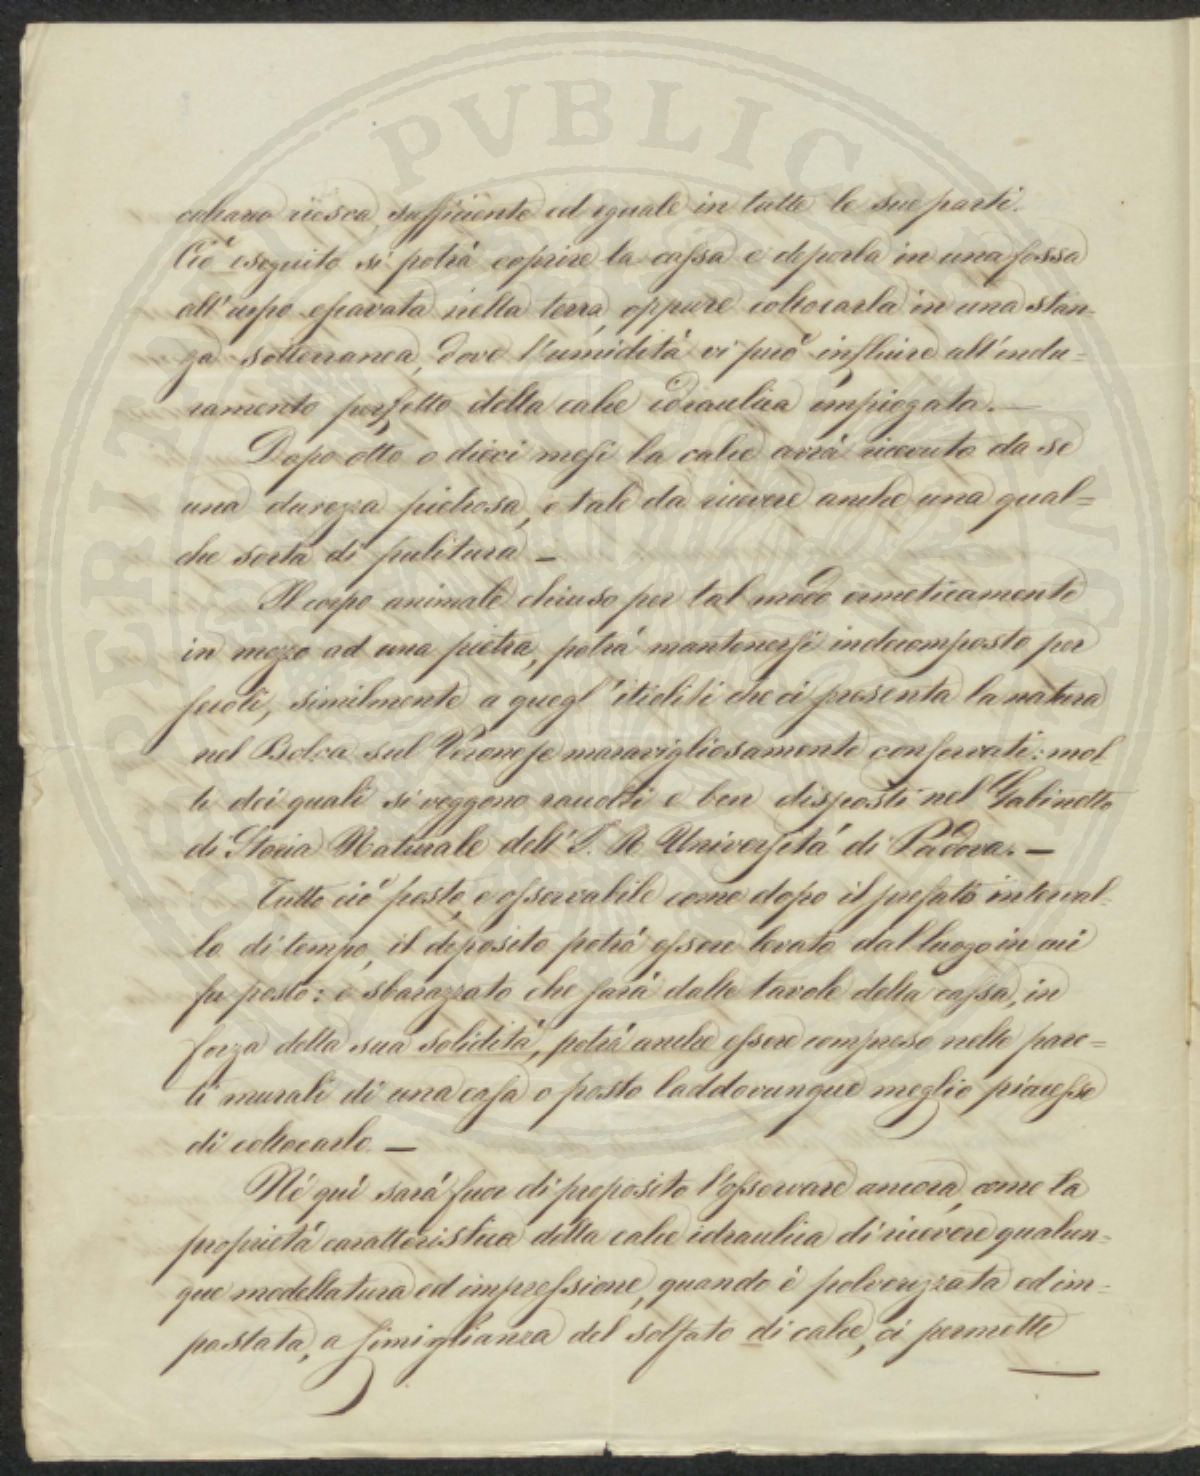 PERITVRA PVBLICA
calcareo riesca sufficiente ed eguale in tutte le sue parti.
Ciò eseguito si potrà coprire la cassa e deporla in una fossa
all'uopo escavata nella terra, oppure collocarla in una stan-
za sotterranea, dove l'umidità vi può influire all'indu=
ramento perfetto della calce idraulica impiegata. —
Dopo otto o dieci mesi la calce avrà ricevuto da se
una durezza pietrosa, e tale da ricevere anche una qual=
che sorta di pulitura —
Il corpo animale chiuso per tal modo ermeticamente
in mezzo ad una pietra, potrà mantenersi indecomposto per
secoli, similmente a quegl'itioliti che ci presenta la natura
nel Bolca sul Veronese maravigliosamente conservati: mol
ti dei quali si veggono raccolti e ben disposti nel Gabinetto
di Storia Naturale dell'I. R. Università di Padova. —
Tutto ciò posto, e osservabile come dopo il prefato interval-
lo di tempo, il deposito potrà essere levato dal luogo in cui
fu posto: e sbarazzato che sarà dalle tavole della cassa, in
forza della sua solidità, potrà anche essere compreso nelle pare=
ti murali di una casa o posto laddovunque meglio piacesse
di collocarlo. —
Nè quì sarà fuor di proposito l'osservare ancora, come la
proprietà caratteristica della calce idraulica di ricevere qualun-
que modellatura ed impressione, quando è polverizzata ed im-
pastata, a simiglianza del solfato di calce, ci permette